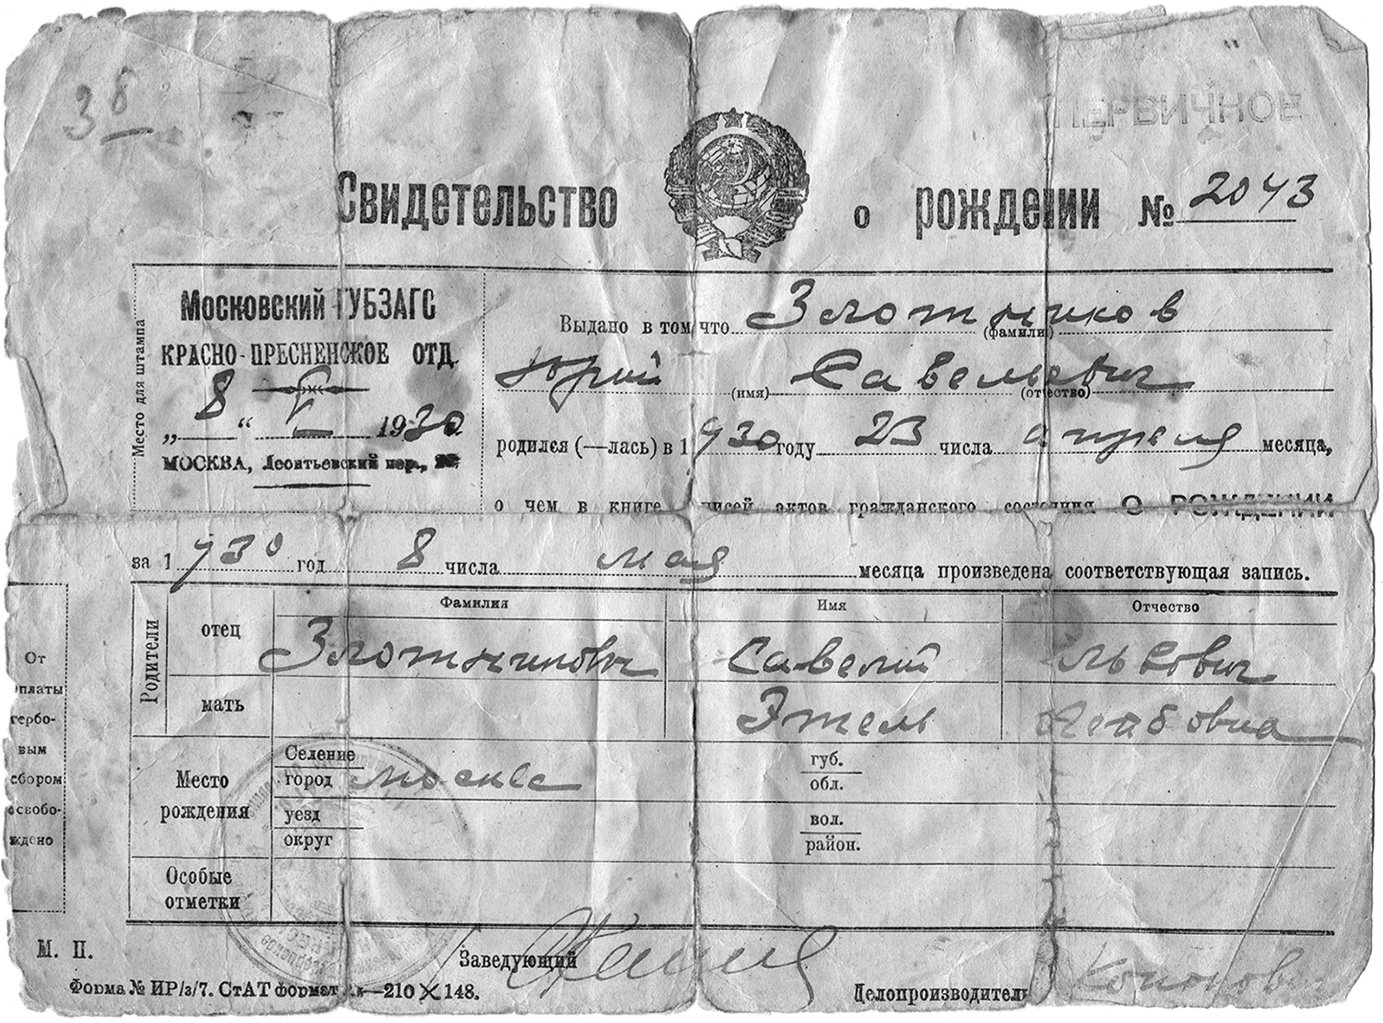 38
ПЕРВИЧНОЕ
Свидетельство о рождении № 2043
Место для штампа
Московский ГУБЗАГС
КРАСНО-ПРЕСНЕНСКОЕ ОТД.
„8“ V 1930
МОСКВА, Леонтьевский пер.,
Выдано в том, что Злотников
(фамилия)
Юрий Савельевич
(имя) (отчество)
родился (—лась) в 1930 году 23 числа апреля месяца,
о чем в книге записей актов гражданского состояния О РОЖДЕНИИ
за 1930 год 8 числа мая месяца произведена соответствующая запись.
Фамилия Имя Отчество
Родители
отец Злотниковы Савелий Львович
мать Этель
Место рождения
Селение
город Москве
губ.
обл.
уезд
округ
вол.
район.
Особые отметки
От
оплаты
гербо-
вым
сбором
освобо-
ждено
М. П.
Заведующий
Делопроизводитель
Форма № ИР/з/7. СтАТ формат —210×148.